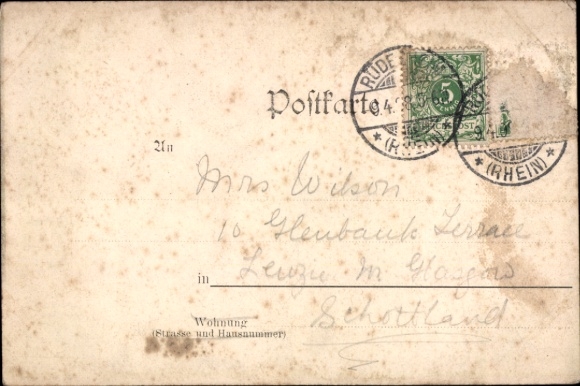 Postkarte
RÜDE
9.4.98
* (RHEIN) *
5
9.4
* (RHEIN) *
An
Mrs Wilson
10 Glenbank Terrace
in Lenzie nr Glasgow
Schottland
Wohnung
(Strasse und Hausnummer)